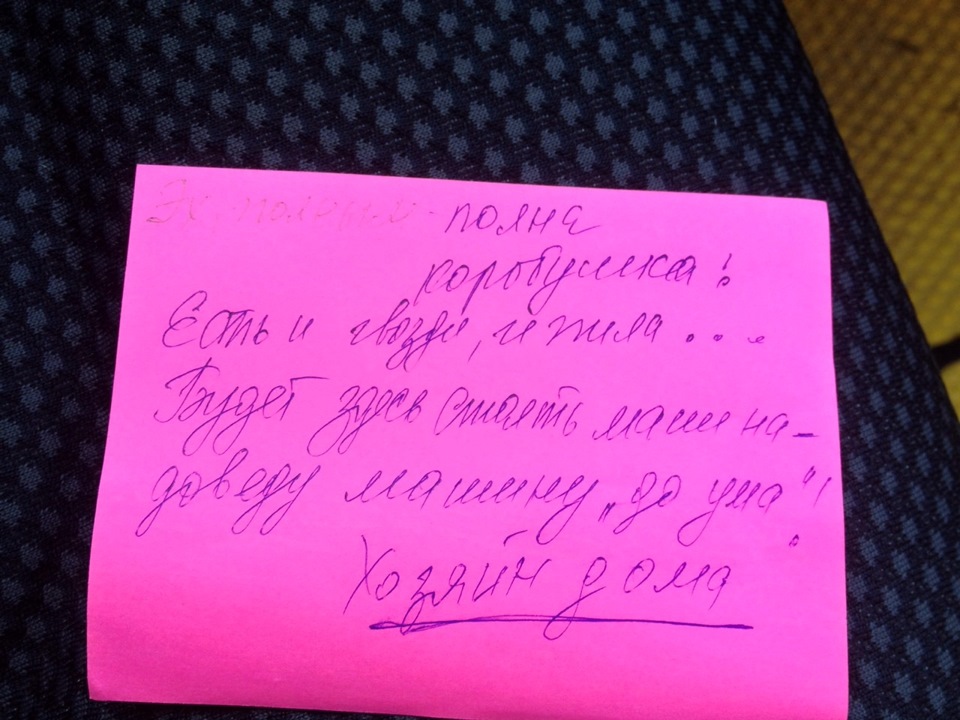 Эх, полным - полна
коробушка!
Есть и гвозди, и пила...
Будет здесь стоять машина -
доведу машину "до ума"!
Хозяин дома